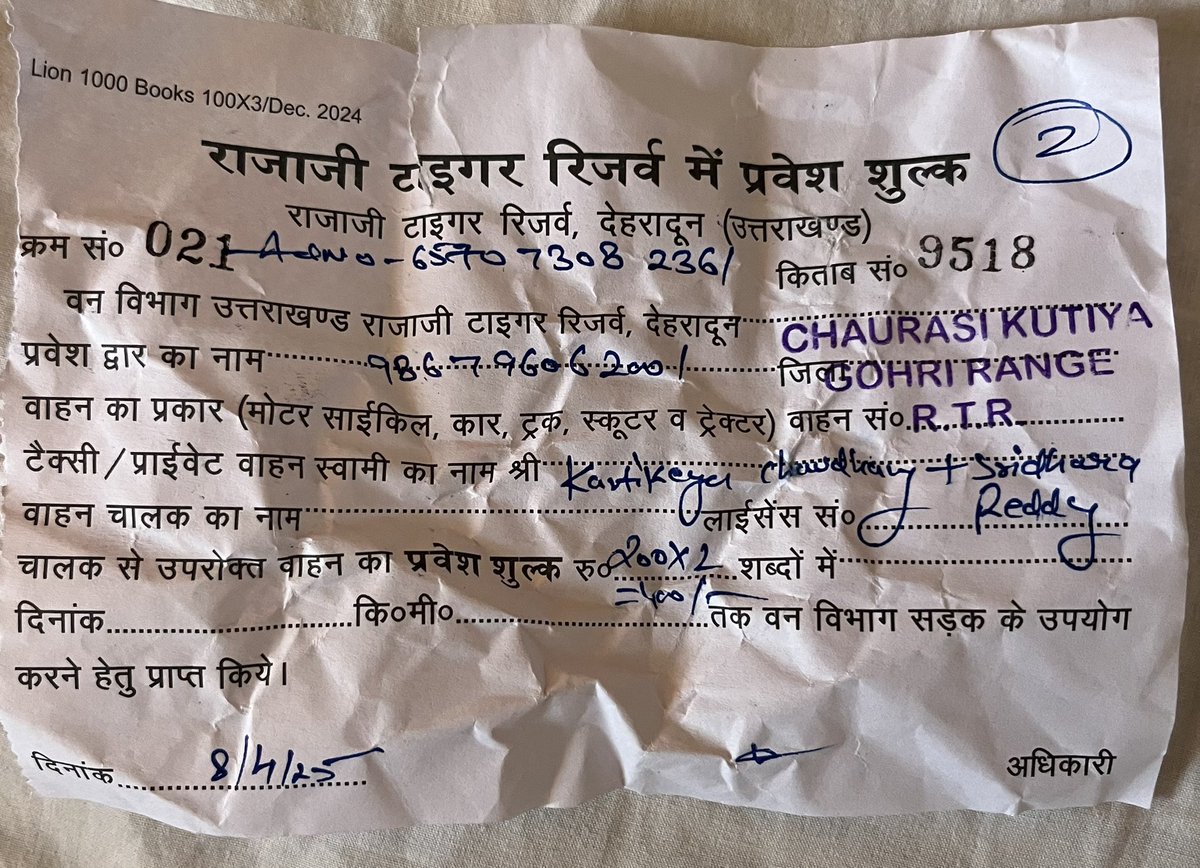 Lion 1000 Books 100X3/Dec. 2024
2
राजाजी टाइगर रिजर्व में प्रवेश शुल्क
राजाजी टाइगर रिजर्व, देहरादून (उत्तराखण्ड)
क्रम सं० 021 - 6570 7308 2361 किताब सं० 9518
वन विभाग उत्तराखण्ड राजाजी टाइगर रिजर्व, देहरादून CHAURASI KUTIYA
प्रवेश द्वार का नाम 98679606200/ जिला GOHRI RANGE
वाहन का प्रकार (मोटर साईकिल, कार, ट्रक, स्कूटर व ट्रेक्टर) वाहन सं० R.T.R
टैक्सी / प्राईवेट वाहन स्वामी का नाम श्री Kartikeya Chowdhary + Sridhara
वाहन चालक का नाम लाईसेंस सं० Reddy
चालक से उपरोक्त वाहन का प्रवेश शुल्क रु० 200X2 शब्दों में
=400/-
दिनांक कि०मी० तक वन विभाग सड़क के उपयोग
करने हेतु प्राप्त किये।
दिनांक 8/4/25 अधिकारी